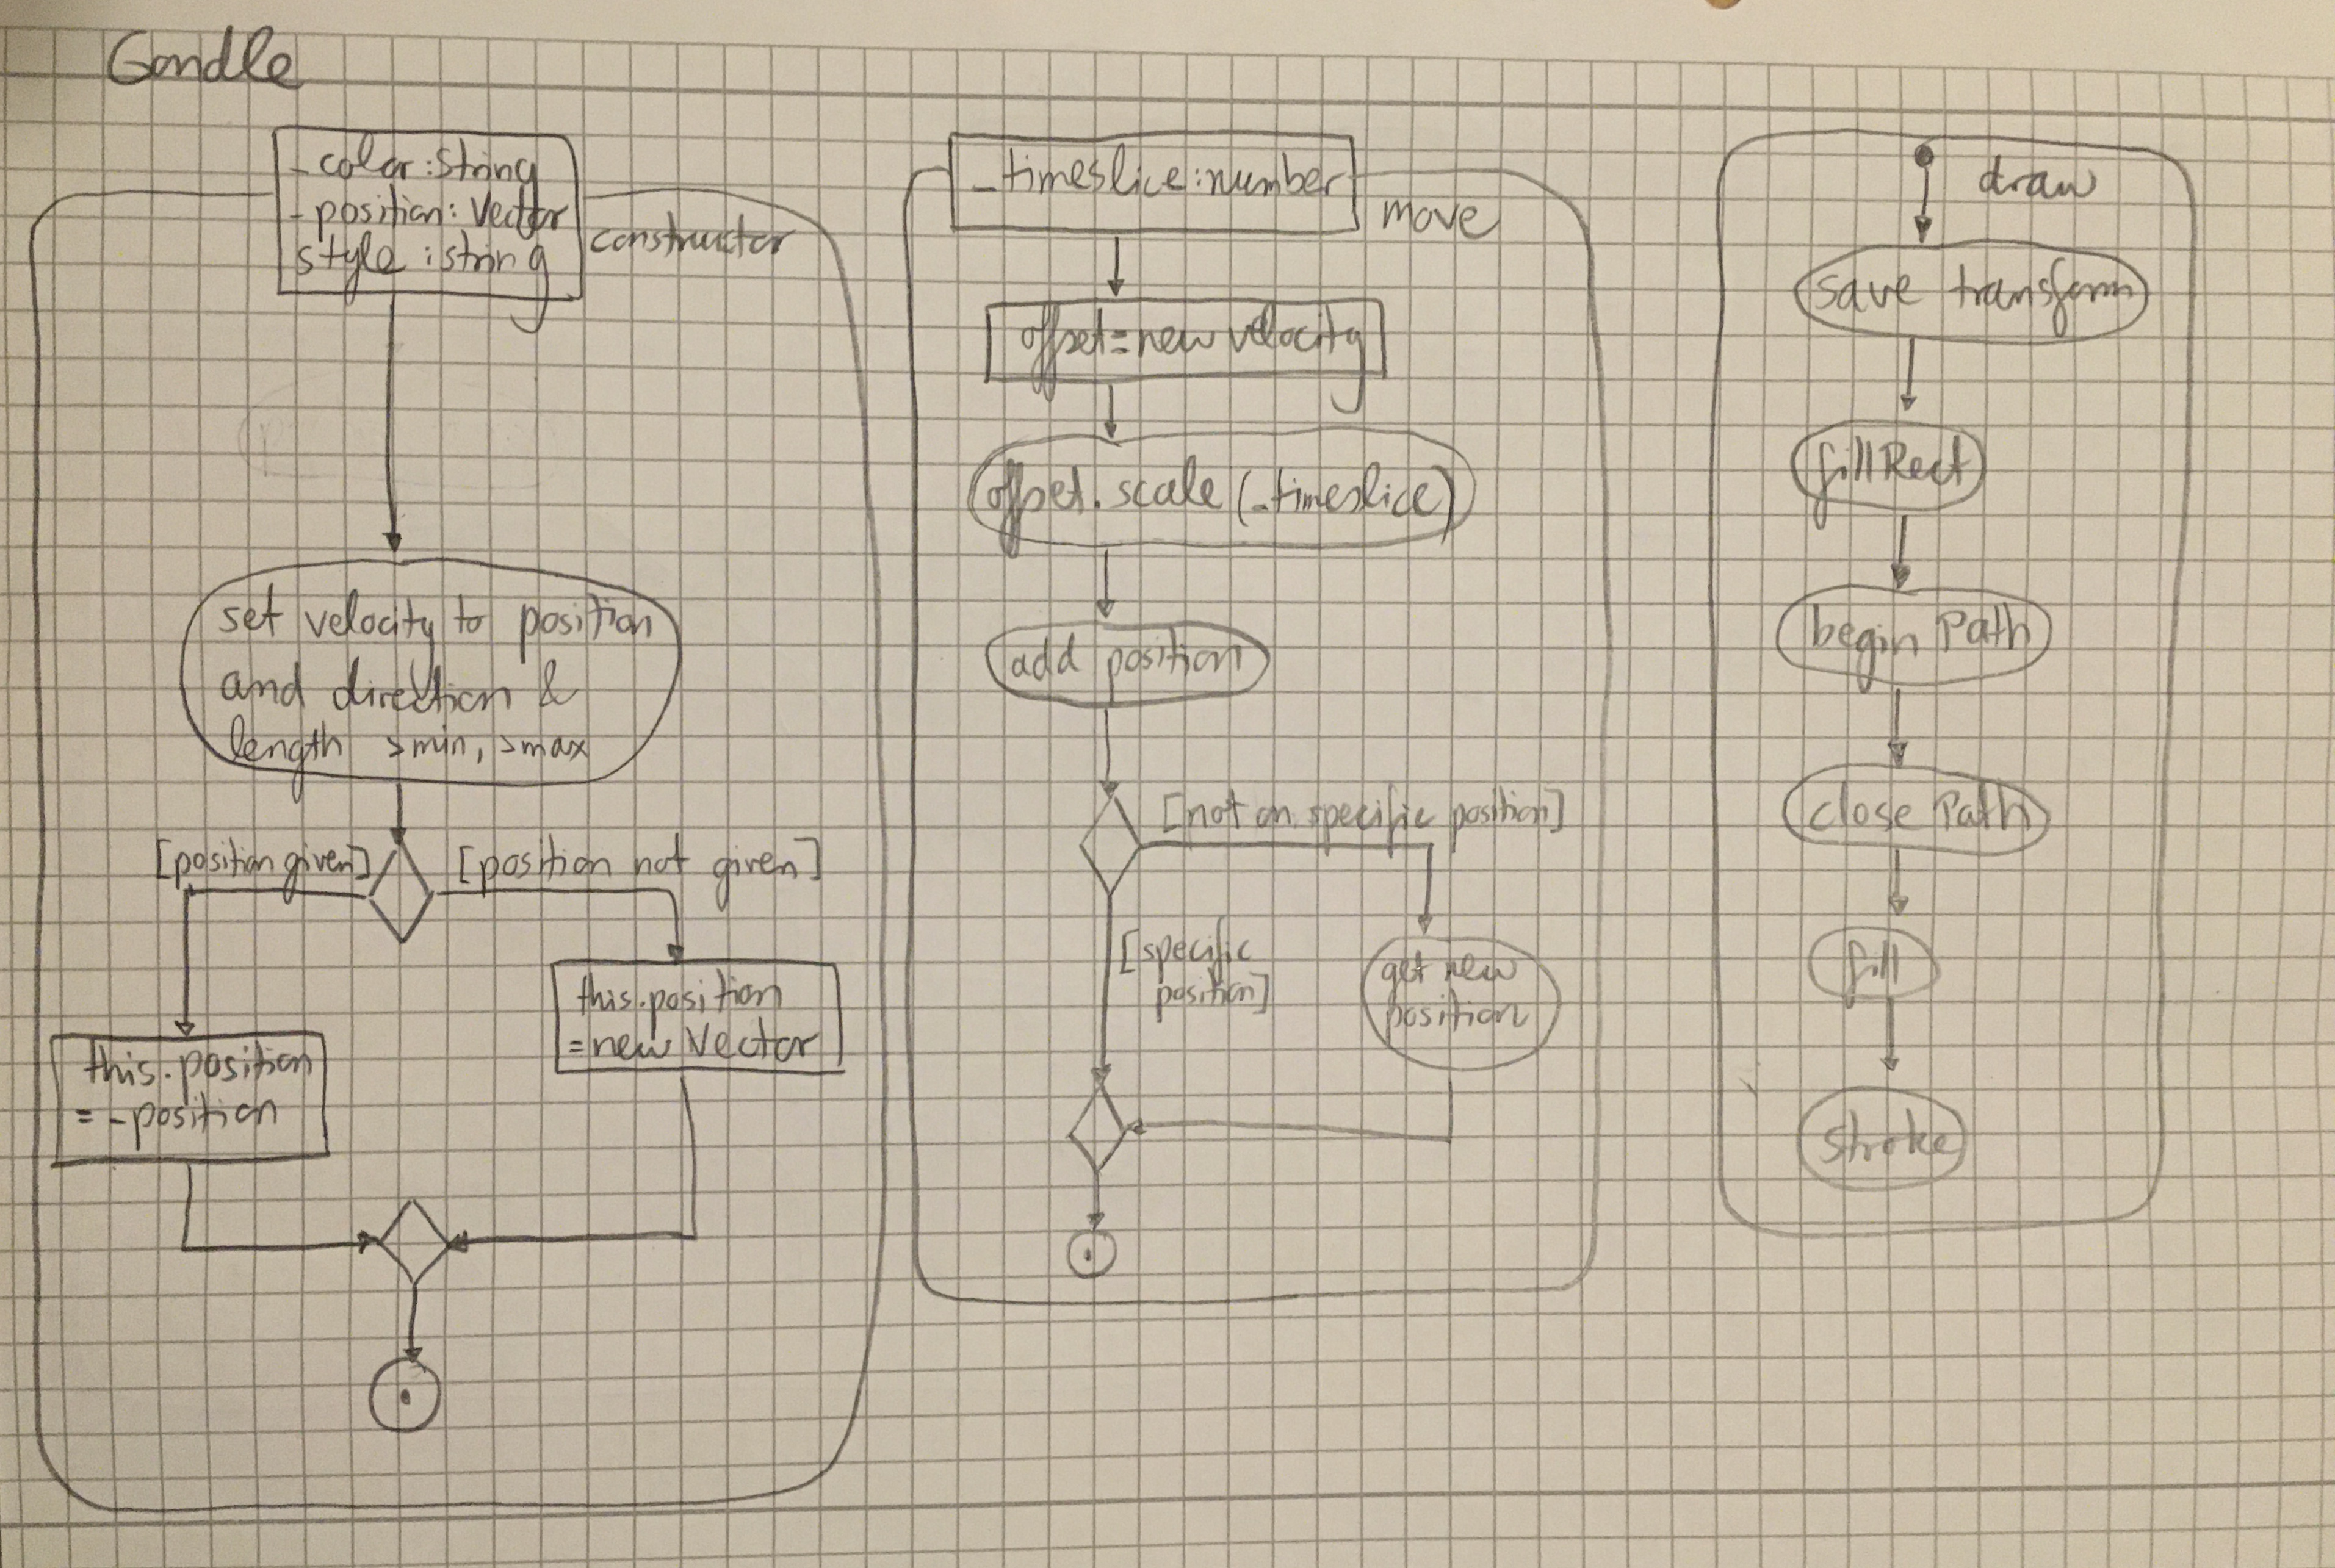 Gondle
_color:String
_position: Vector
style:string
constructor
set velocity to position
and direction &
length >min, >max
[position given]
[position not given]
this.position
= _position
this.position
=new Vector
_timeslice:number
move
offset=new velocity
offset.scale(_timeslice)
add position
[not on specific position]
[specific
position]
get new
position
draw
save transform
fillRect
begin Path
close Path
fill
stroke